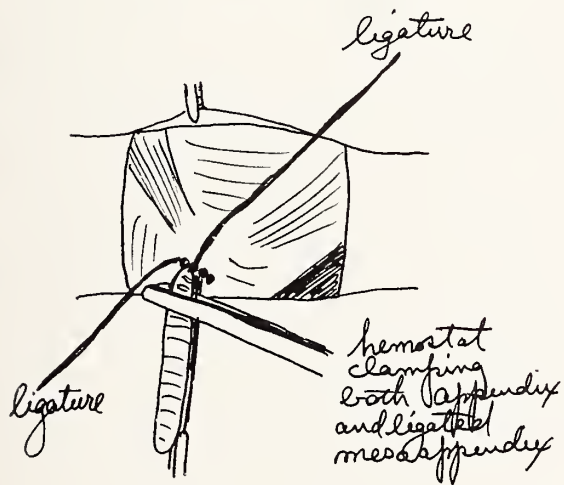 ligature
ligature
hemostat
clamping
both appendix
and ligated
mesoappendix